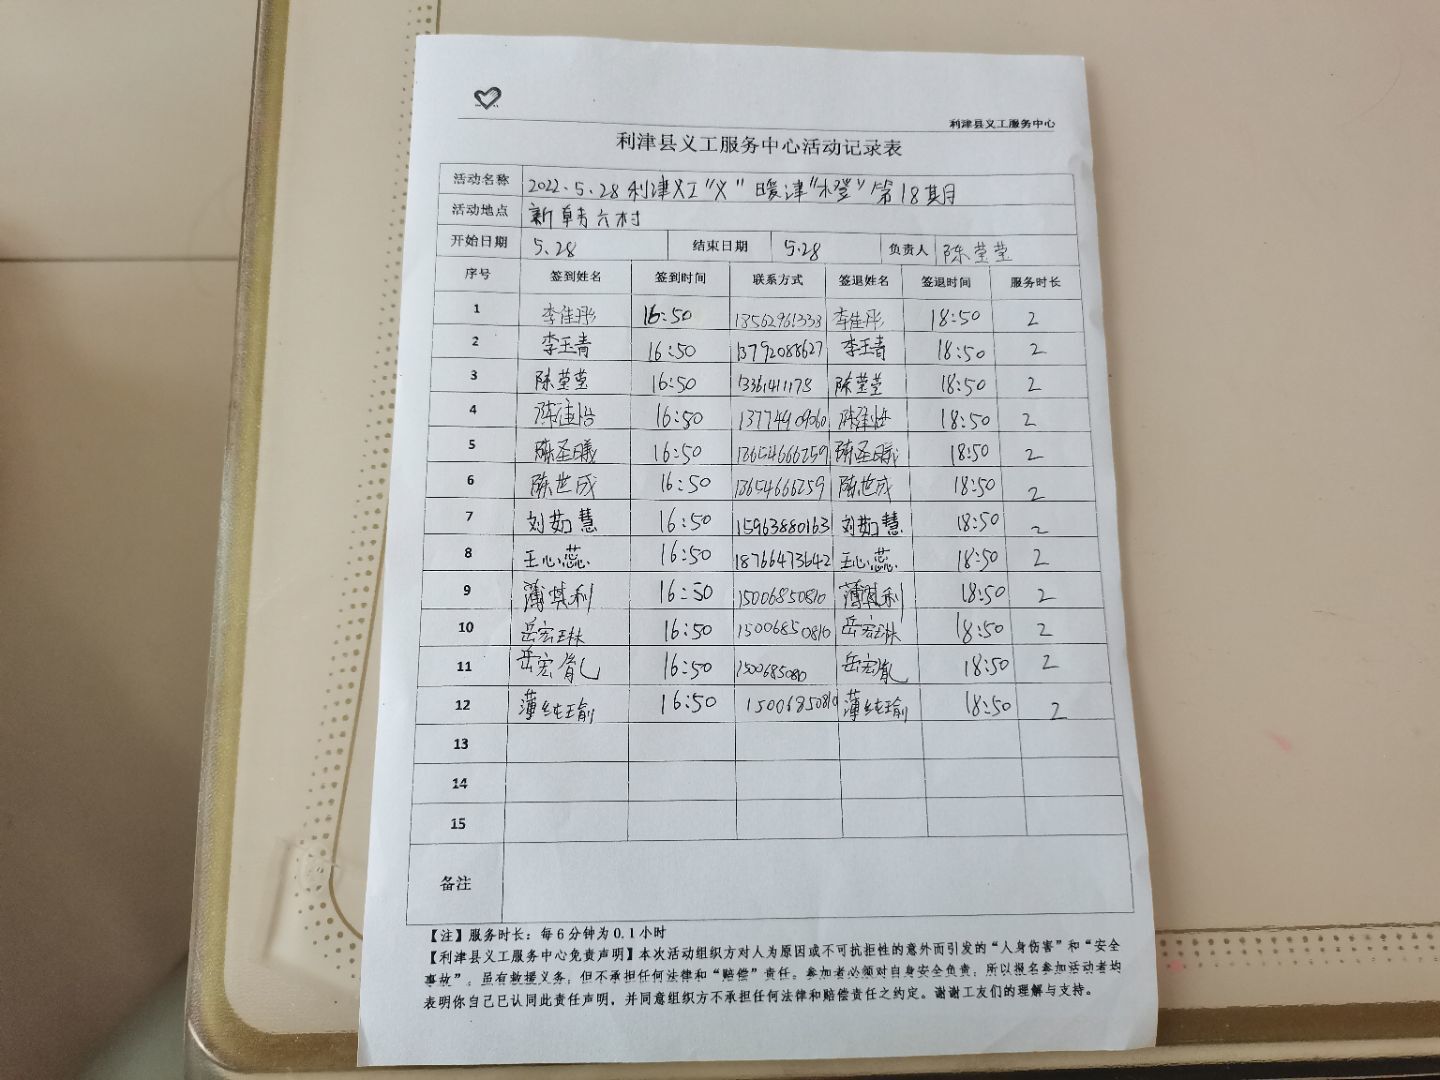 利津县义工服务中心
利津县义工服务中心活动记录表
活动名称 2022.5.28利津义工"义"暖津"橙"第18期
活动地点 新韩六村
开始日期 5.28 结束日期 5.28 负责人 陈莹莹
序号 签到姓名 签到时间 联系方式 签退姓名 签退时间 服务时长
1 李佳彤 16:50 13562961333 李佳彤 18:50 2
2 李玉青 16:50 13792088627 李玉青 18:50 2
3 陈莹莹 16:50 13361411178 陈莹莹 18:50 2
4 陈佳怡 16:50 13774909060 陈佳怡 18:50 2
5 陈圣曦 16:50 13654666259 陈圣曦 18:50 2
6 陈世成 16:50 13654666259 陈世成 18:50 2
7 刘茹慧 16:50 15963880163 刘茹慧 18:50 2
8 王心蕊 16:50 18766473642 王心蕊 18:50 2
9 薄其利 16:50 15006850810 薄其利 18:50 2
10 岳宏琳 16:50 15006850810 岳宏琳 18:50 2
11 岳宏胤 16:50 1500685080 岳宏胤 18:50 2
12 薄纯瑜 16:50 15006850810 薄纯瑜 18:50 2
13
14
15
备注
【注】服务时长：每6分钟为0.1小时
【利津县义工服务中心免责声明】本次活动组织方对人为原因或不可抗拒性的意外而引发的“人身伤害”和“安全
事故”，虽有救援义务，但不承担任何法律和“赔偿”责任。参加者必须对自身安全负责，所以报名参加活动者均
表明你自己已认同此责任声明，并同意组织方不承担任何法律和赔偿责任之约定。谢谢工友们的理解与支持。